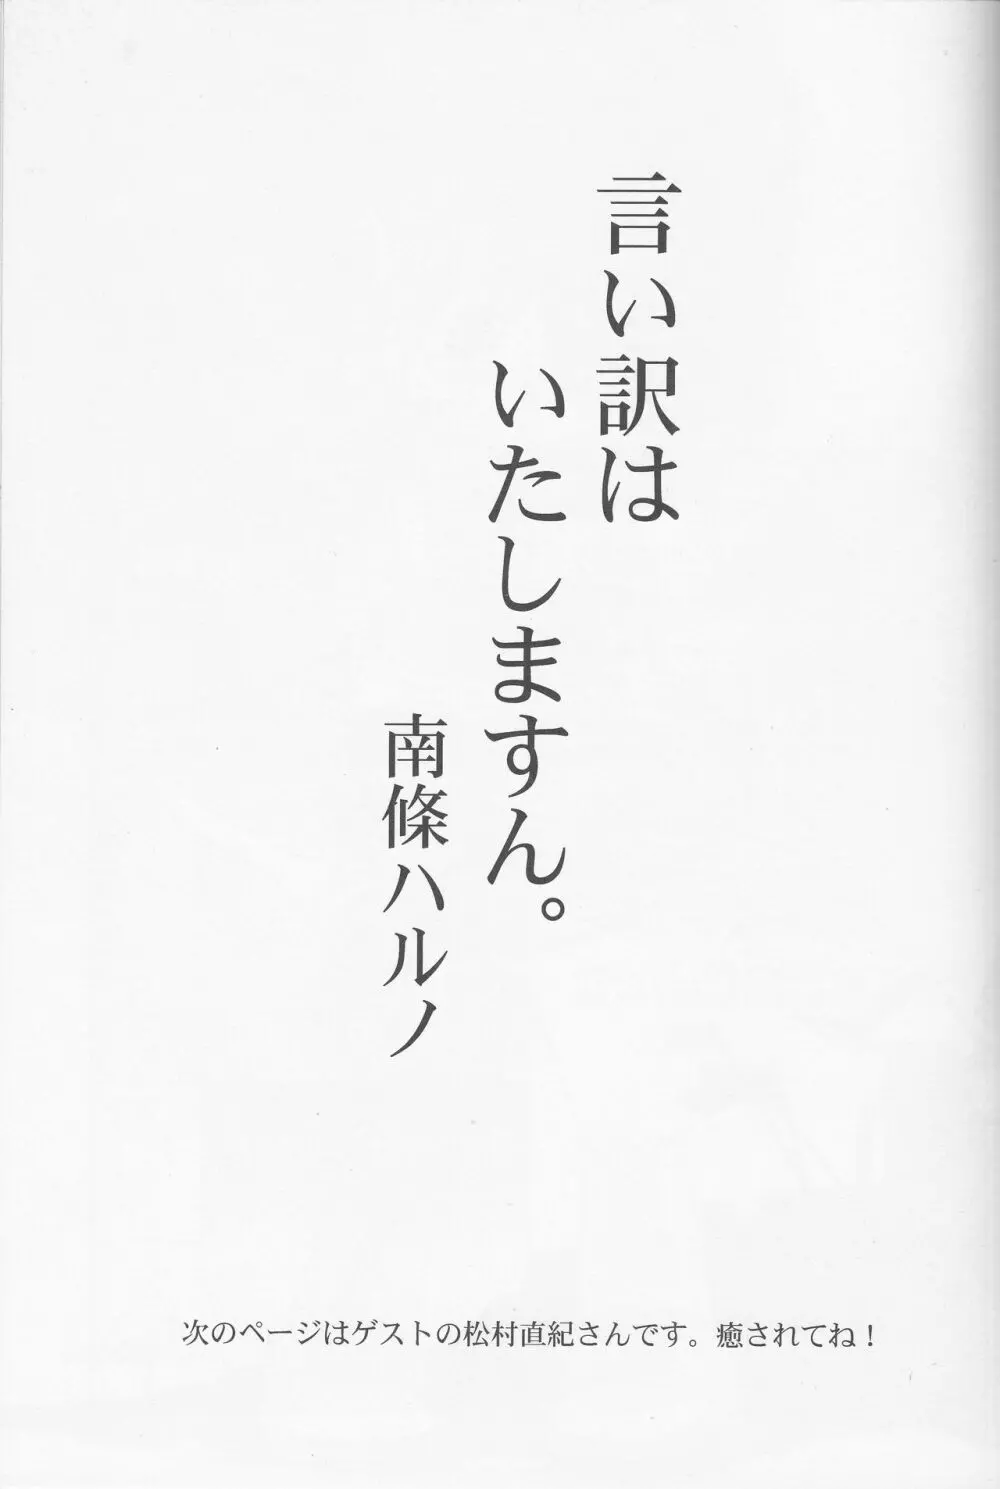 言い訳は
いたしますん。
南條ハルノ
次のページはゲストの松村直紀さんです。癒されてね！